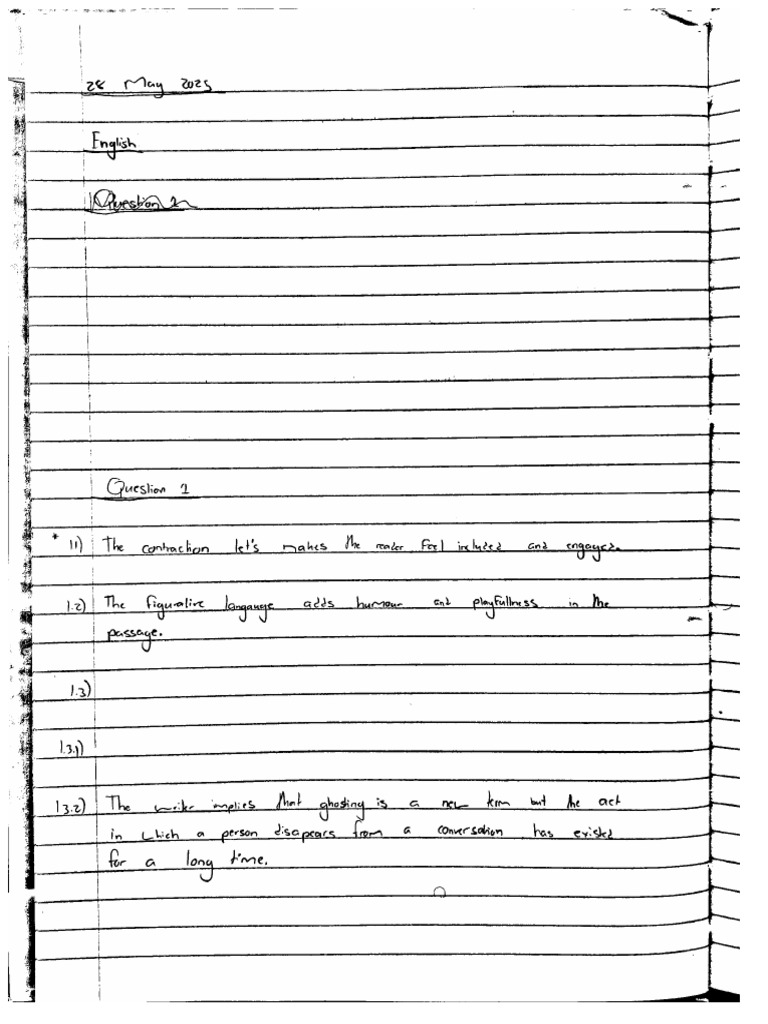 28 May 2025
English
Question 1
Question 1
* 1.1) The contraction let's makes the reader feel included and engaged.
1.2) The figurative langauge adds humour and playfullness in the
passage.
1.3)
1.3.1)
1.3.2) The writer implies that ghosting is a new term but the act
in which a person disapears from a conversation has existed
for a long time.